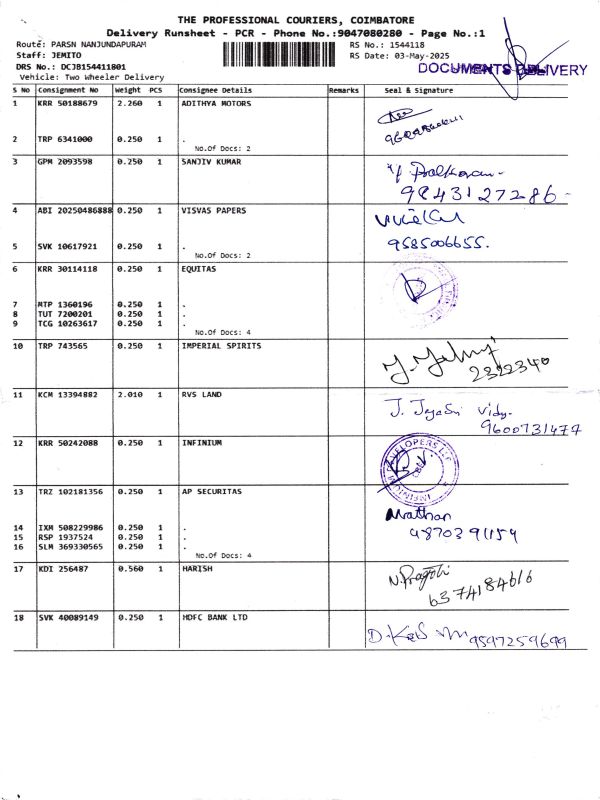 THE PROFESSIONAL COURIERS, COIMBATORE
Delivery Runsheet - PCR - Phone No.:9047080280 - Page No.:1
Route: PARSN NANJUNDAPURAM RS No.: 1544118
Staff: JEMITO RS Date: 03-May-2025
DRS No.: DCJB154411801
DOCUMENTS DELIVERY
Vehicle: Two Wheeler Delivery
S No Consignment No Weight PCS Consignee Details Remarks Seal & Signature
1 KRR 50188679 2.260 1 ADITHYA MOTORS
2 TRP 6341000 0.250 1 .
No.Of Docs: 2
3 GPM 2093598 0.250 1 SANJIV KUMAR
9843127286
4 ABI 20250486888 0.250 1 VISVAS PAPERS
5 SVK 10617921 0.250 1 . 9585006655.
No.Of Docs: 2
6 KRR 30114118 0.250 1 EQUITAS
7 MTP 1360196 0.250 1 .
8 TUT 7200201 0.250 1 .
9 TCG 10263617 0.250 1 .
No.Of Docs: 4
10 TRP 743565 0.250 1 IMPERIAL SPIRITS
2322340
11 KCM 13394882 2.010 1 RVS LAND
J. Jayasri Vidy-
9600731477
12 KRR 50242088 0.250 1 INFINIUM
DEVELOPERS LLP
13 TRZ 102181356 0.250 1 AP SECURITAS
Mathan
14 IXM 508229986 0.250 1 .
15 RSP 1937524 0.250 1 .
16 SLM 369330565 0.250 1 .
No.Of Docs: 4
17 KDI 256487 0.560 1 HARISH
6374184616
18 SVK 40089149 0.250 1 HDFC BANK LTD
9597259699